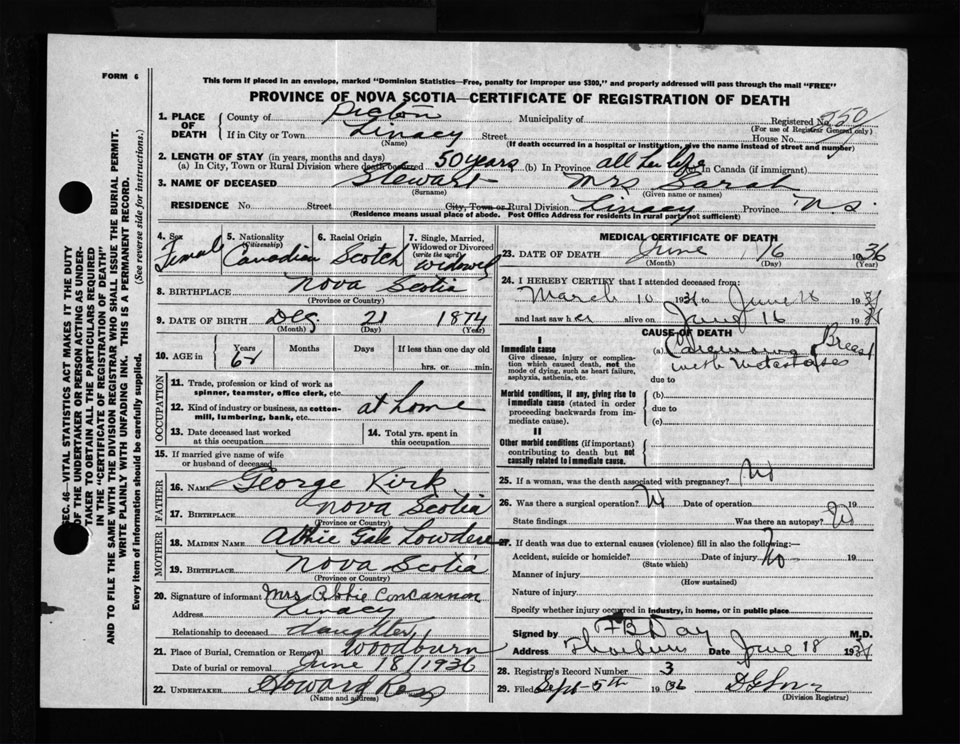 FORM 6
This form if placed in an envelope, marked "Dominion Statistics—Free, penalty for improper use $300," and properly addressed will pass through the mail "FREE"
PROVINCE OF NOVA SCOTIA—CERTIFICATE OF REGISTRATION OF DEATH
1. PLACE OF DEATH { County of Pictou Municipality of Registered No. 250
(For use of Registrar General only)
If in City or Town Linacy Street House No.
(Name) (If death occurred in a hospital or institution, give the name instead of street and number)
2. LENGTH OF STAY (in years, months and days)
(a) In City, Town or Rural Division where death occurred 50 years (b) In Province all her life In Canada (if immigrant)
3. NAME OF DECEASED Stewart Mrs Sarah
(Surname) (Given name or names)
RESIDENCE No. Street City, Town or Rural Division Linacy Province N.S.
(Residence means usual place of abode. Post Office Address for residents in rural parts not sufficient)
4. Sex Femal
5. Nationality (Citizenship) Canadian
6. Racial Origin Scotch
7. Single, Married, Widowed or Divorced (write the word) widowed
8. BIRTHPLACE Nova Scotia
(Province or Country)
9. DATE OF BIRTH Dec. 21 1874
(Month) (Day) (Year)
10. AGE in { Years Months Days If less than one day old
hrs. or min.
OCCUPATION
11. Trade, profession or kind of work as spinner, teamster, office clerk, etc.
12. Kind of industry or business, as cotton-mill, lumbering, bank, etc. at home
13. Date deceased last worked at this occupation
14. Total yrs. spent in this occupation
15. If married give name of wife or husband of deceased
FATHER
16. NAME George Kirk
17. BIRTHPLACE Nova Scotia
(Province or Country)
MOTHER
18. MAIDEN NAME Abbie Gale
19. BIRTHPLACE Nova Scotia
(Province or Country)
20. Signature of informant Mrs Abbie Concannon
Address Linacy
Relationship to deceased daughter
21. Place of Burial, Cremation or Removal Woodburn
Date of burial or removal June 18/1936
22. UNDERTAKER Howard Ross
(Name and address)
MEDICAL CERTIFICATE OF DEATH
23. DATE OF DEATH June 16 1936
(Month) (Day) (Year)
24. I HEREBY CERTIFY that I attended deceased from:
March 10 1936 to June 16 1936
and last saw her alive on June 16 1936
CAUSE OF DEATH
I
Immediate cause
Give disease, injury or complication which caused death, not the mode of dying, such as heart failure, asphyxia, asthenia, etc.
(a) Carcinoma of Breast
with Metastases
due to
Morbid conditions, if any, giving rise to immediate cause (stated in order proceeding backwards from immediate cause).
(b)
due to
(c)
II
Other morbid conditions (if important) contributing to death but not causally related to immediate cause.
25. If a woman, was the death associated with pregnancy? No
26. Was there a surgical operation? No Date of operation 19
State findings Was there an autopsy? No
27. If death was due to external causes (violence) fill in also the following:—
Accident, suicide or homicide? Date of injury No 19
(State which)
Manner of injury
(How sustained)
Nature of injury
Specify whether injury occurred in industry, in home, or in public place
Signed by F B Day M.D.
Address Thorburn Date June 18 1936
28. Registrar's Record Number 3
29. Filed Sept 5th 1936
(Division Registrar)
SEC. 46—VITAL STATISTICS ACT MAKES IT THE DUTY
OF THE UNDERTAKER OR PERSON ACTING AS UNDER-
TAKER TO OBTAIN ALL THE PARTICULARS REQUIRED
IN THE "CERTIFICATE OF REGISTRATION OF DEATH"
AND TO FILE THE SAME WITH THE DIVISION REGISTRAR WHO SHALL ISSUE THE BURIAL PERMIT.
WRITE PLAINLY WITH UNFADING INK. THIS IS A PERMANENT RECORD.
Every item of information should be carefully supplied. (See reverse side for instructions.)